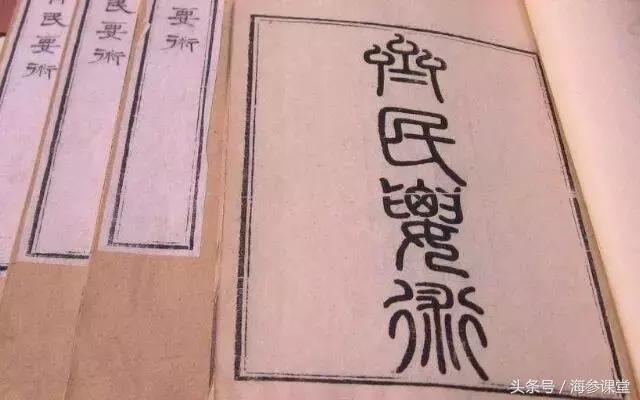 齊民要術
民要術
民要術
要術
头条号 / 海参课堂